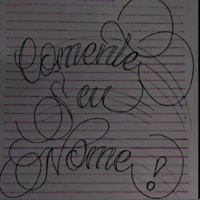 Comente
Seu
Nome!